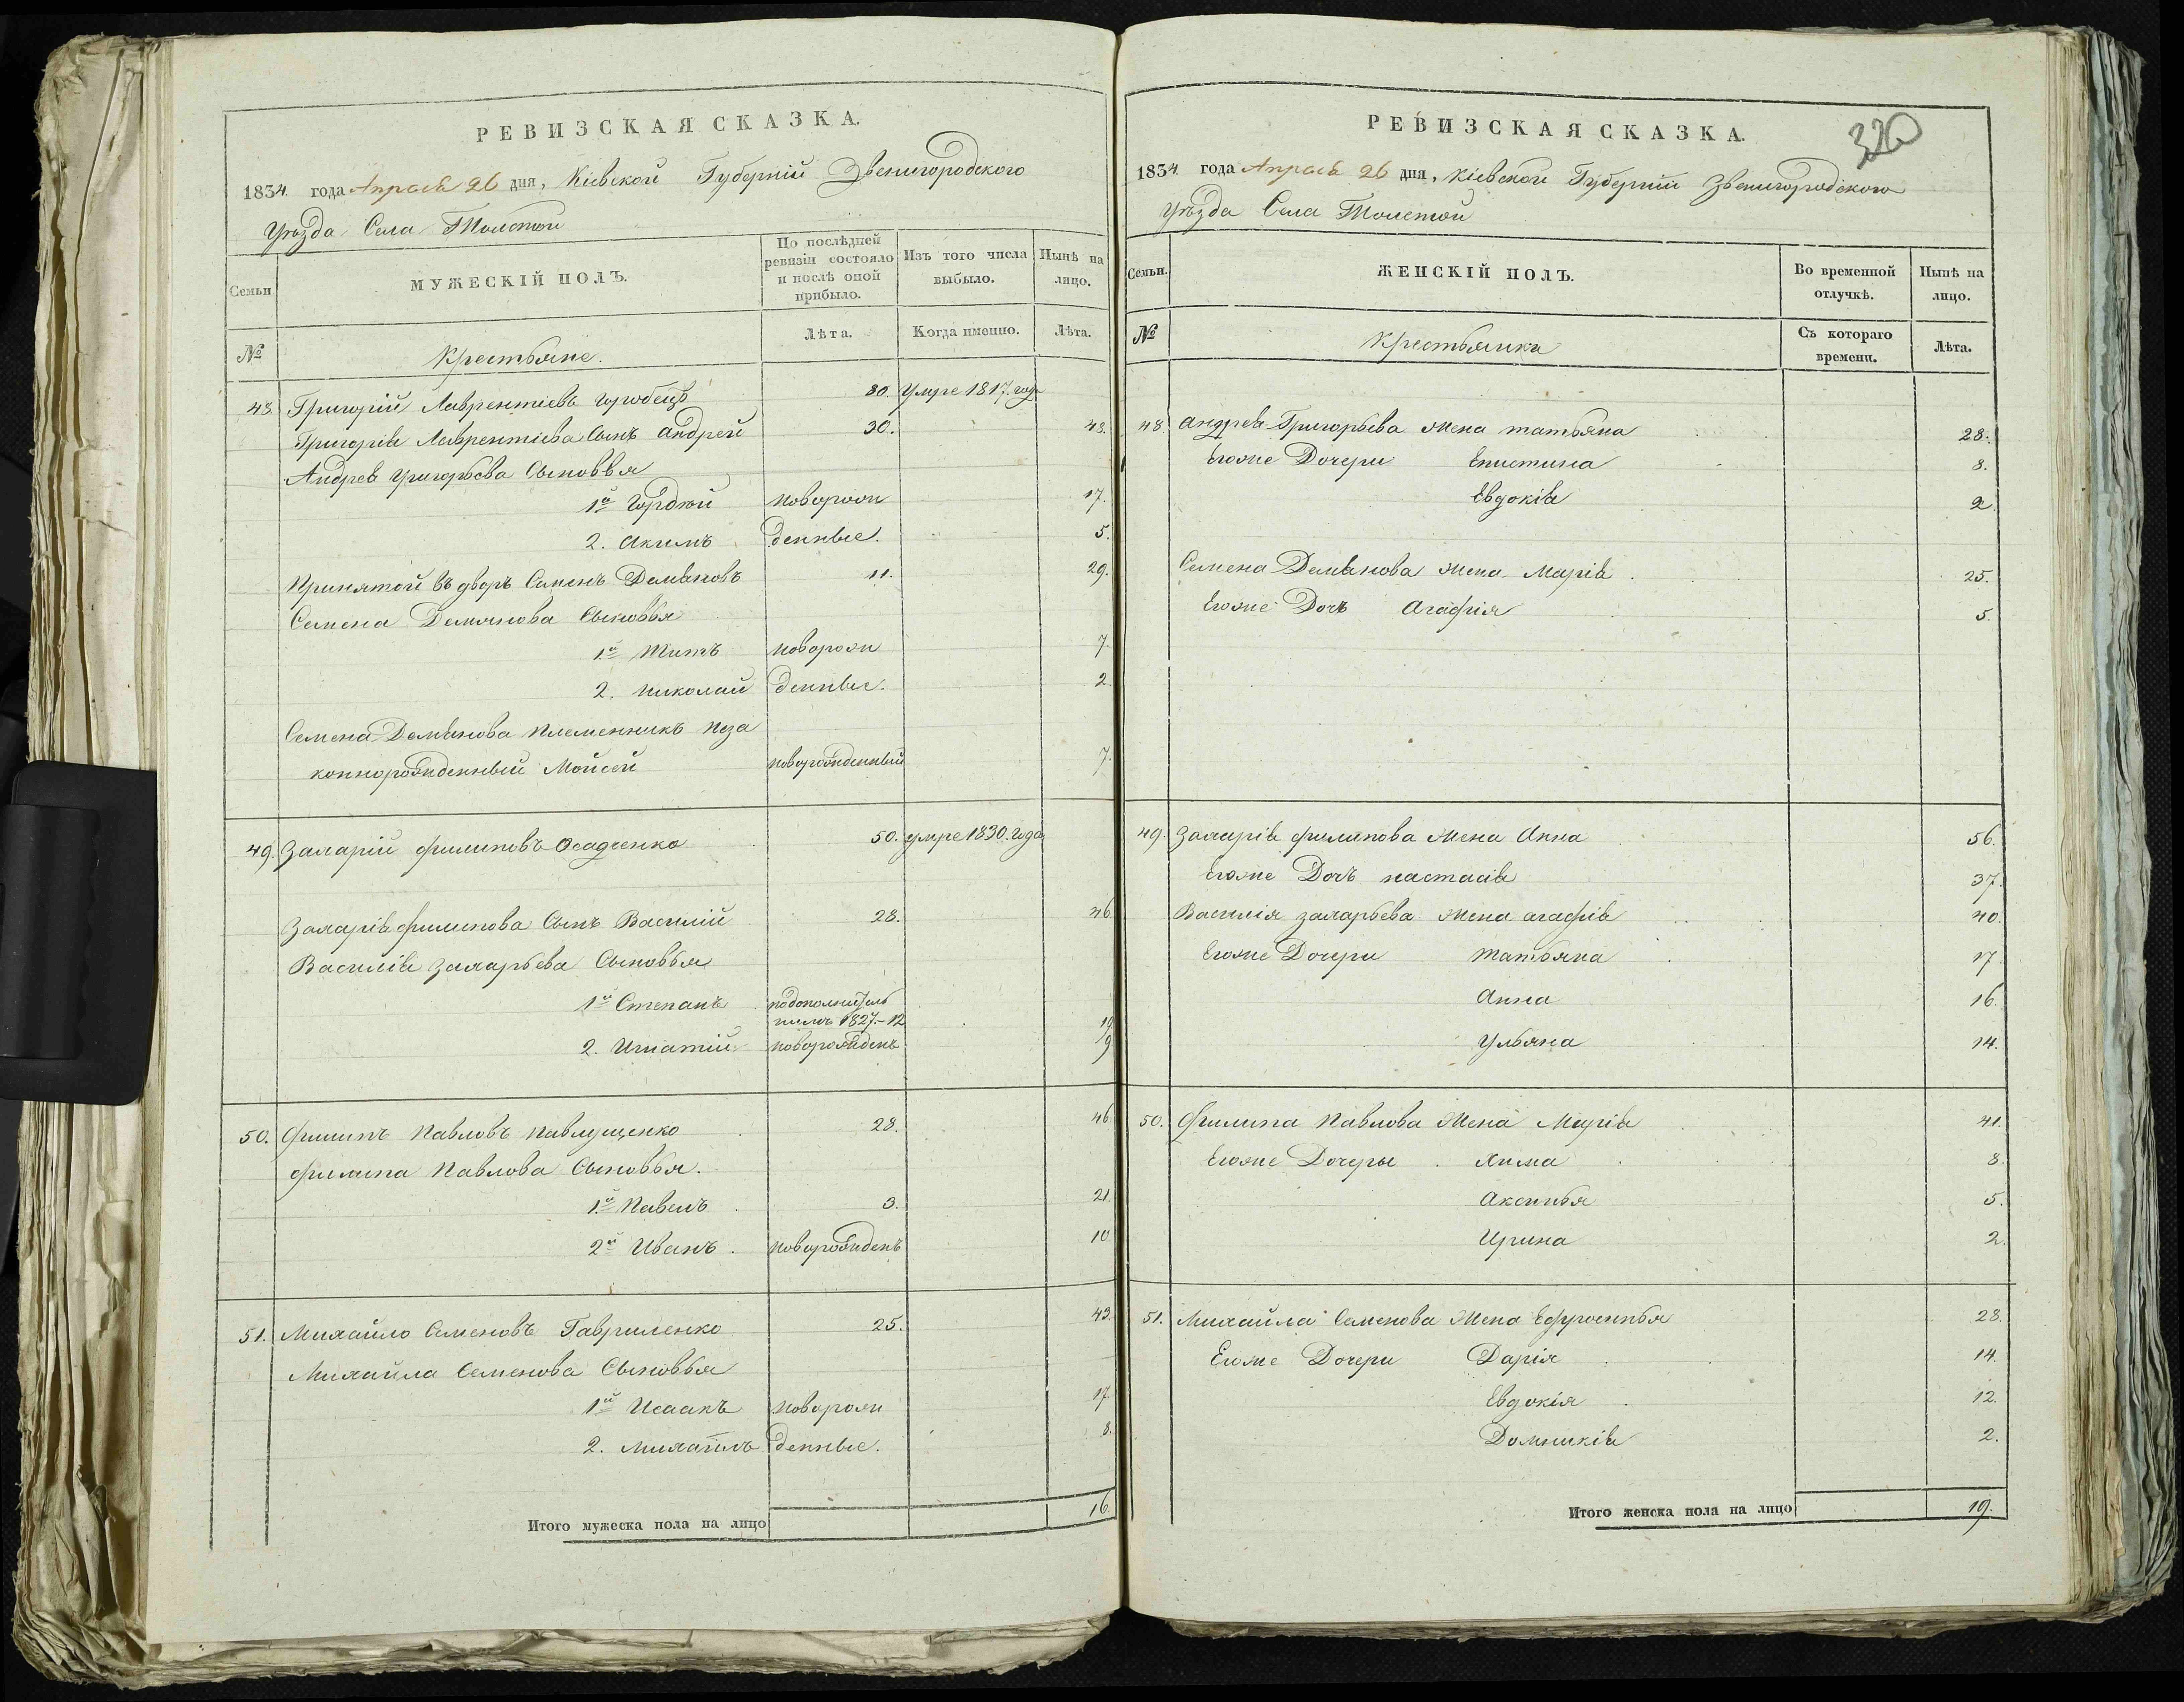 РЕВИЗСКАЯ СКАЗКА.
1834. года Апреля 26 дня, Кіевской Губерніи Звенигородского
Уѣзда Села Толстой
Семьи
МУЖЕСКІЙ ПОЛЪ.
По послѣдней ревизіи состояло и послѣ оной прибыло.
Изъ того числа выбыло.
Нынѣ на лицо.
№
Крестьяне.
Лѣта.
Когда именно.
Лѣта.
48 Григорій Лаврентіевъ Горобецъ 80. Умре 1817. года
Григорія Лаврентіева Сынъ Андрей 30. 48.
Андрея Григорьева Сыновья
1й Гордюй новорож 17.
2. Акимъ денные. 5.
Принятой въ дворъ Семенъ Демяновъ 11. 29.
Семена Демянова Сыновья
1й Титъ новорож 7.
2. Николай денные. 2.
Семена Демянова племенникъ неза
коннорожденный Мойсей новорожденный 7.
49. Захарій Филиповъ Осадченко 50. умре 1830. года
Захарія Филипова Сынъ Василій 28. 46.
Василія Захарьева Сыновья
1й Степанъ подополнитель
нымъ 1827.-12 19
2. Игнатій новорожденъ 9.
50. Филипъ Павловъ Павлущенко 28. 46.
Филипа Павлова Сыновья.
1й Павелъ 3. 21.
2й Иванъ. новорожденъ 10
51. Михайло Семеновъ Гавриленко 25. 43.
Михайла Семенова Сыновья
1й Исаакъ новорож 17.
2. Михайлъ денные. 8.
Итого мужеска пола на лицо 16.
РЕВИЗСКАЯ СКАЗКА.
320
1834. года Апреля 26 дня, Кіевской Губерніи Звенигородского
Уѣзда Села Толстой
Семьи.
ЖЕНСКІЙ ПОЛЪ.
Во временной отлучкѣ.
Нынѣ на лицо.
№
Крестьянки
Съ котораго времени.
Лѣта.
48. Андрея Григорьева Жена Татьяна 28.
Егоже Дочери Епистима 8.
Евдокія 2.
Семена Демянова Жена Марія 25.
Егоже Дочь Агафія 5.
49. Захарія Филипова Жена Анна 56.
Егоже Дочь Настасія 37.
Василія Захарьева Жена Агафія 40.
Егоже Дочери Татьяна 17.
Анна 16.
Ульяна 14.
50. Филипа Павлова Жена Марія 41.
Егоже Дочеры 8.
Аксинья 5.
Ирина 2.
51. Михайла Семенова Жена Ефросинья 28.
Егоже Дочери Дарія 14.
Евдокія 12.
Домникія 2.
Итого женска пола на лицо 19.